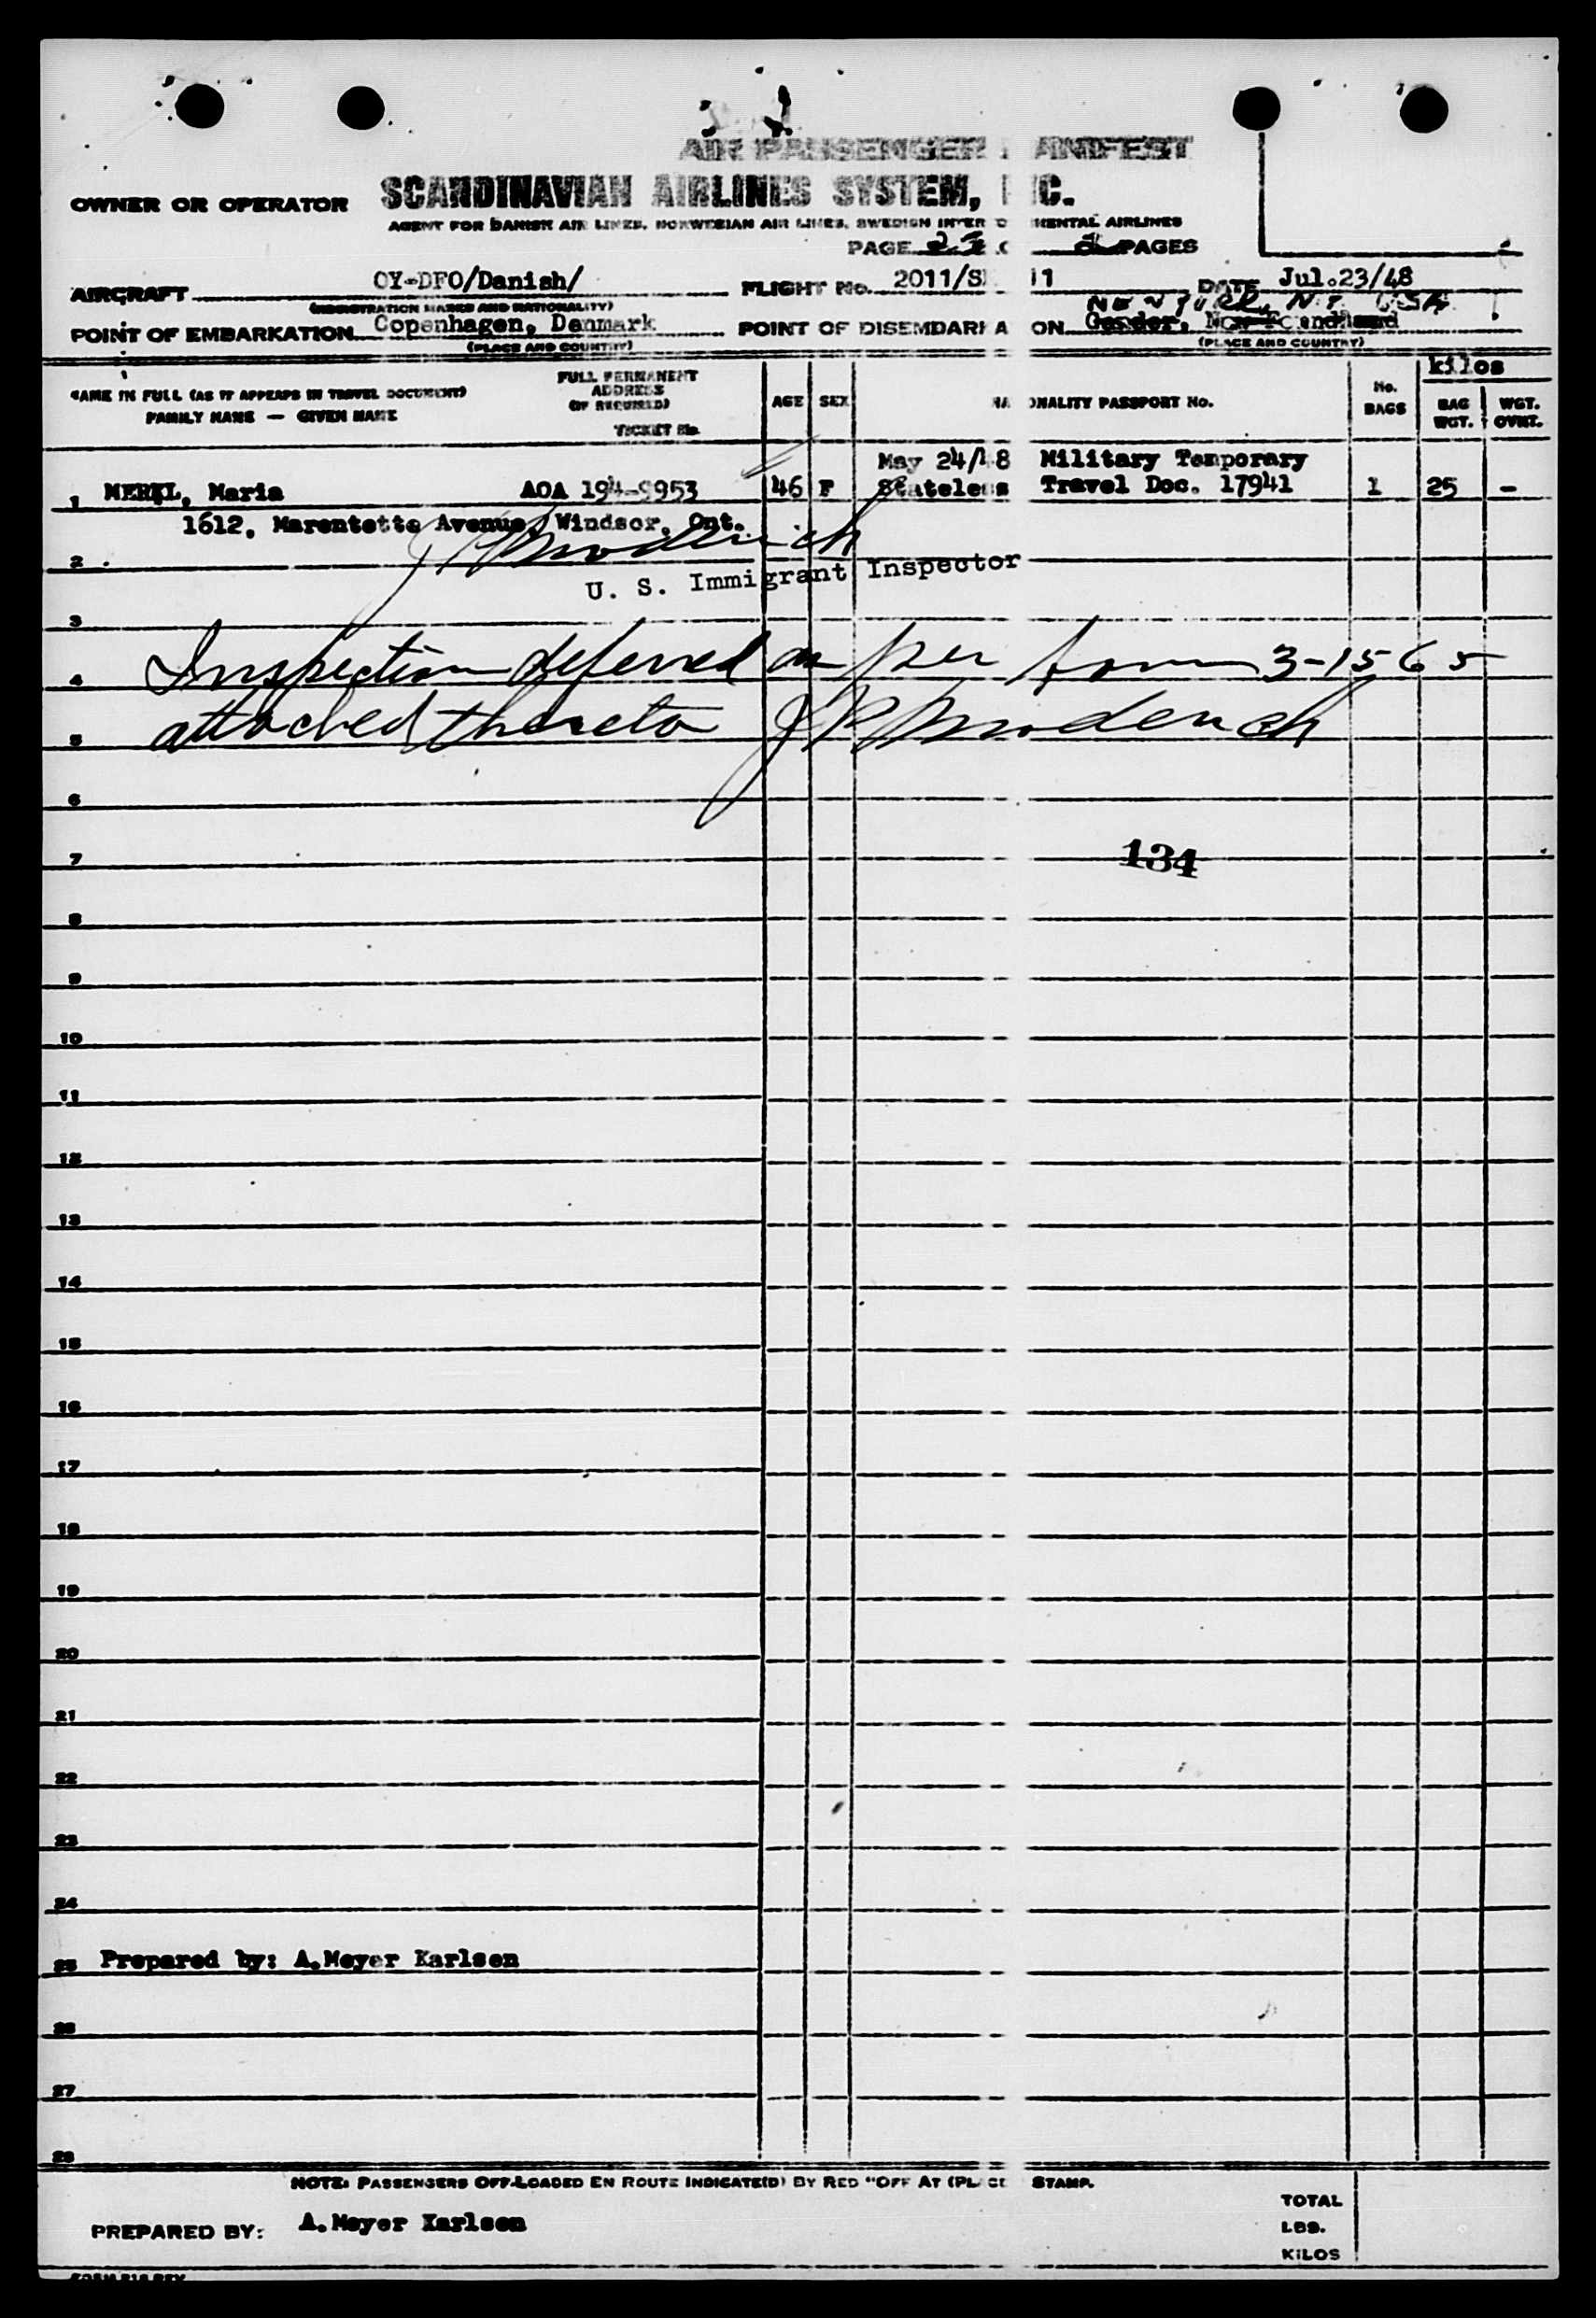 AIR PASSENGER MANIFEST
OWNER OR OPERATOR SCANDINAVIAN AIRLINES SYSTEM, INC.
AGENT FOR DANISH AIR LINES, NORWEGIAN AIR LINES, SWEDISH INTERCONTINENTAL AIRLINES
PAGE 2 PAGES
AIRCRAFT OY-DFO/Danish/ FLIGHT No. 2011/S 11 DATE Jul.23/48
(REGISTRATION MARKS AND NATIONALITY) NEW YORK, N.Y. USA
POINT OF EMBARKATION Copenhagen, Denmark POINT OF DISEMBARKATION Gander, New Foundland
(PLACE AND COUNTRY) (PLACE AND COUNTRY)
NAME IN FULL (AS IT APPEARS IN TRAVEL DOCUMENT)
FAMILY NAME — GIVEN NAME
FULL PERMANENT
ADDRESS
(IF REQUIRED)
TICKET No.
AGE SEX NATIONALITY PASSPORT No. No.
BAGS
kilos
BAG
WGT.
WGT.
OVWT.
May 24/48 Military Temporary
1 MERTL, Maria AOA 194-9953 46 F Stateless Travel Doc. 17941 1 25 -
1612, Marentette Avenue, Windsor, Ont.
2
U. S. Immigrant Inspector
3
4 Inspection deferred as per form 3-1565
5 attached thereto
6
7 134
8
9
10
11
12
13
14
15
16
17
18
19
20
21
22
23
24
25 Prepared by: A.Meyer Karlsen
26
27
28
NOTE: PASSENGERS OFF-LOADED EN ROUTE INDICATE(D) BY RED "OFF AT (PLACE) STAMP.
PREPARED BY: A.Meyer Karlsen
TOTAL
LBS.
KILOS